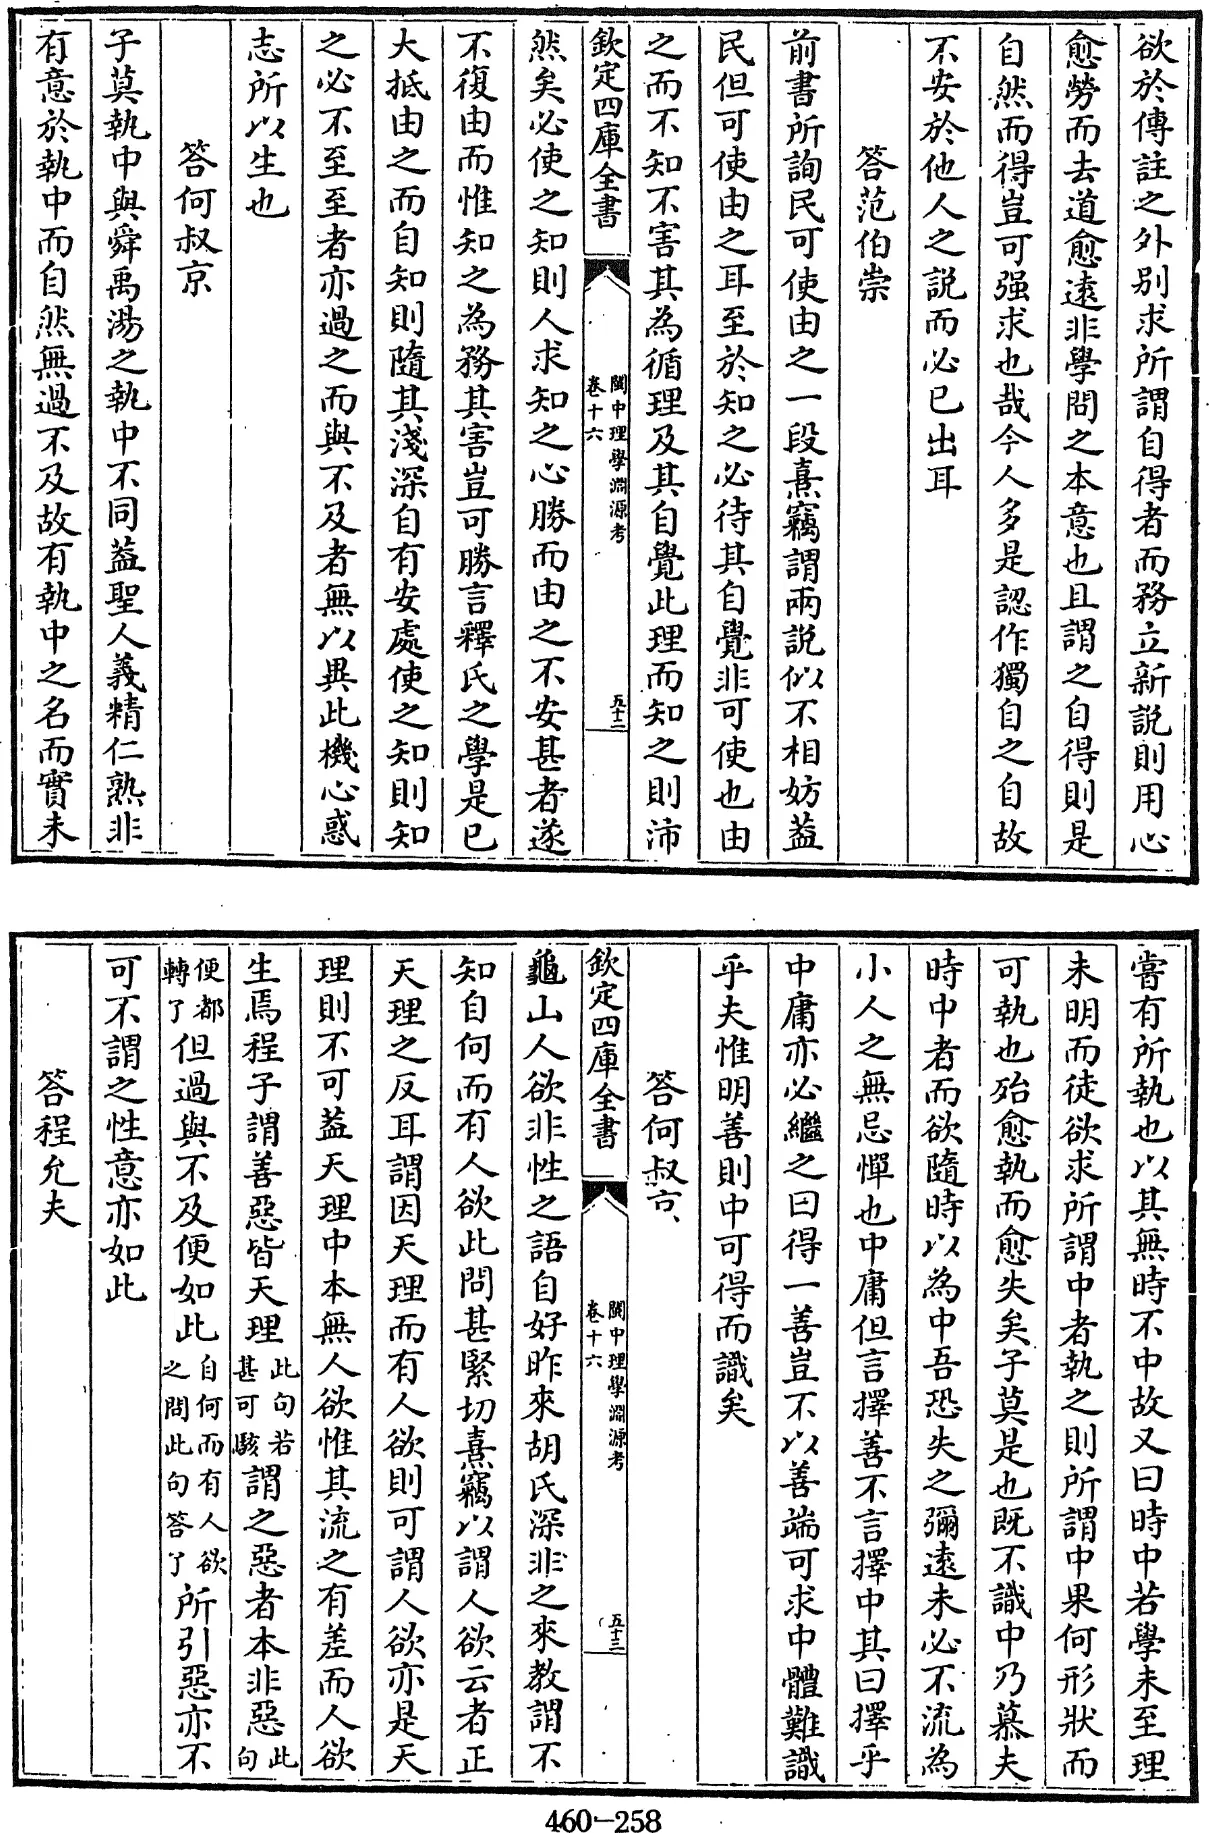 欲於傳註之外别求所謂自得者而務立新説則用心
愈勞而去道愈遠非學問之本意也且謂之自得則是
自然而得豈可强求也哉今人多是認作獨自之自故
不安於他人之説而必已出耳
答范伯崇
前書所詢民可使由之一段熹竊謂兩説似不相妨葢
民但可使由之耳至於知之必待其自覺非可使也由
之而不知不害其為循理及其自覺此理而知之則沛
欽定四庫全書
閩中理學淵源考
卷十六
五十二
然矣必使之知則人求知之心勝而由之不安甚者遂
不復由而惟知之為務其害豈可勝言釋氏之學是已
大抵由之而自知則隨其淺深自有安處使之知則知
之必不至至者亦過之而與不及者無以異此機心惑
志所以生也
答何叔京
子莫執中與舜禹湯之執中不同葢聖人義精仁熟非
有意於執中而自然無過不及故有執中之名而實未
嘗有所執也以其無時不中故又曰時中若學未至理
未明而徒欲求所謂中者執之則所謂中果何形狀而
可執也殆愈執而愈失矣子莫是也既不識中乃慕夫
時中者而欲隨時以為中吾恐失之彌遠未必不流為
小人之無忌憚也中庸但言擇善不言擇中其曰擇乎
中庸亦必繼之曰得一善豈不以善端可求中體難識
乎夫惟明善則中可得而識矣
答何叔京
欽定四庫全書
閩中理學淵源考
卷十六
五十三
龜山人欲非性之語自好昨來胡氏深非之來教謂不
知自何而有人欲此問甚緊切熹竊以謂人欲云者正
天理之反耳謂因天理而有人欲則可謂人欲亦是天
理則不可葢天理中本無人欲惟其流之有差而人欲
生焉程子謂善惡皆天理此句若甚可駭謂之惡者本非惡此句
便都轉了但過與不及便如此自何而有人欲之問此句答了所引惡亦不
可不謂之性意亦如此
答程允夫
460-258